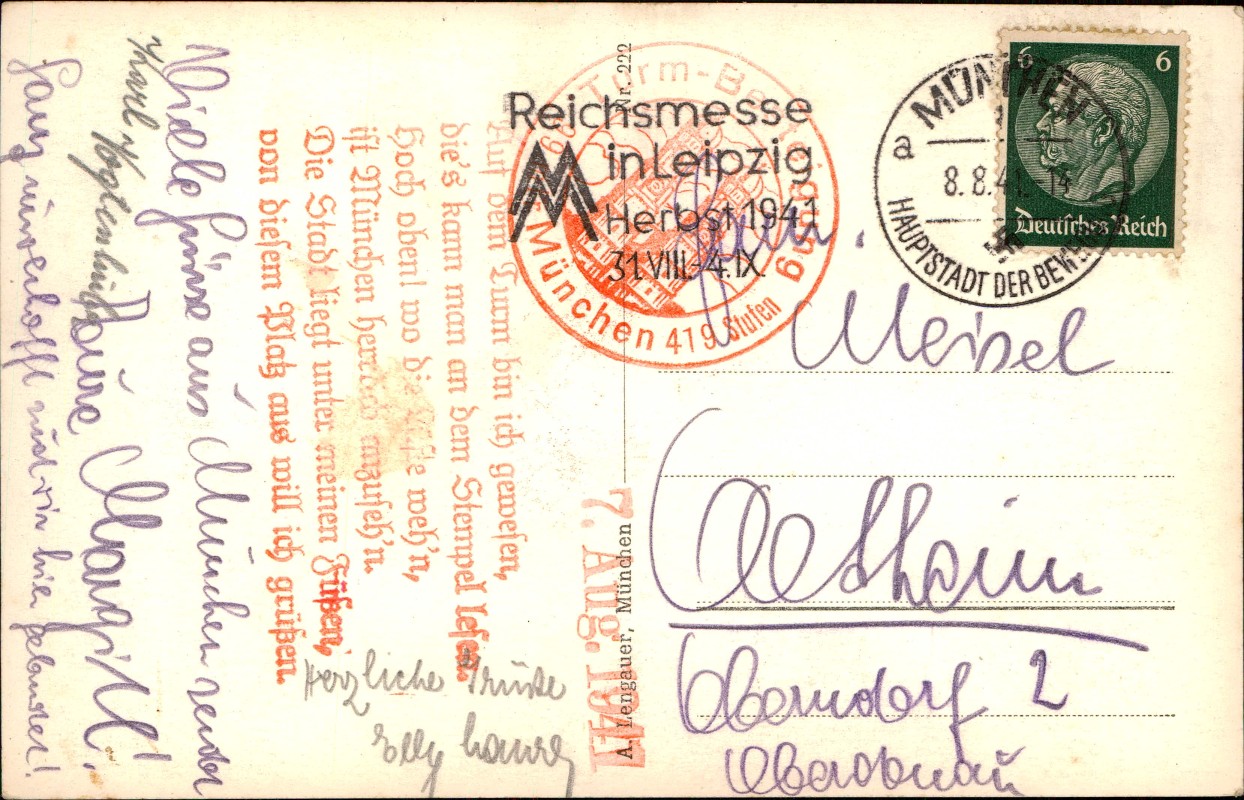 Viele Grüsse aus München sendet
Eure Margitl!
Ganz unverhofft sind wir hier gelandet!
Karl
Auf dem Turm bin ich gewesen,
die's kann man an dem Stempel lesen.
Hoch oben! wo die Lüfte weh'n,
ist München herrlich anzuseh'n.
Die Stadt liegt unter meinen Füßen,
von diesem Platz aus will ich grüßen.
Herzliche Grüße
Elly
Turm-Besteigung
München 419 Stufen
Reichsmesse
in Leipzig
Herbst 1941
31.VIII.-4.IX.
Nr. 222
A. Lengauer, München
7. Aug. 1941
MÜNCHEN
a
8.8.41. 14
HAUPTSTADT DER BEWEGUNG
6 6
Deutsches Reich
Fam.
Meisel
Ostheim
Oberndorf 2
Oberdonau